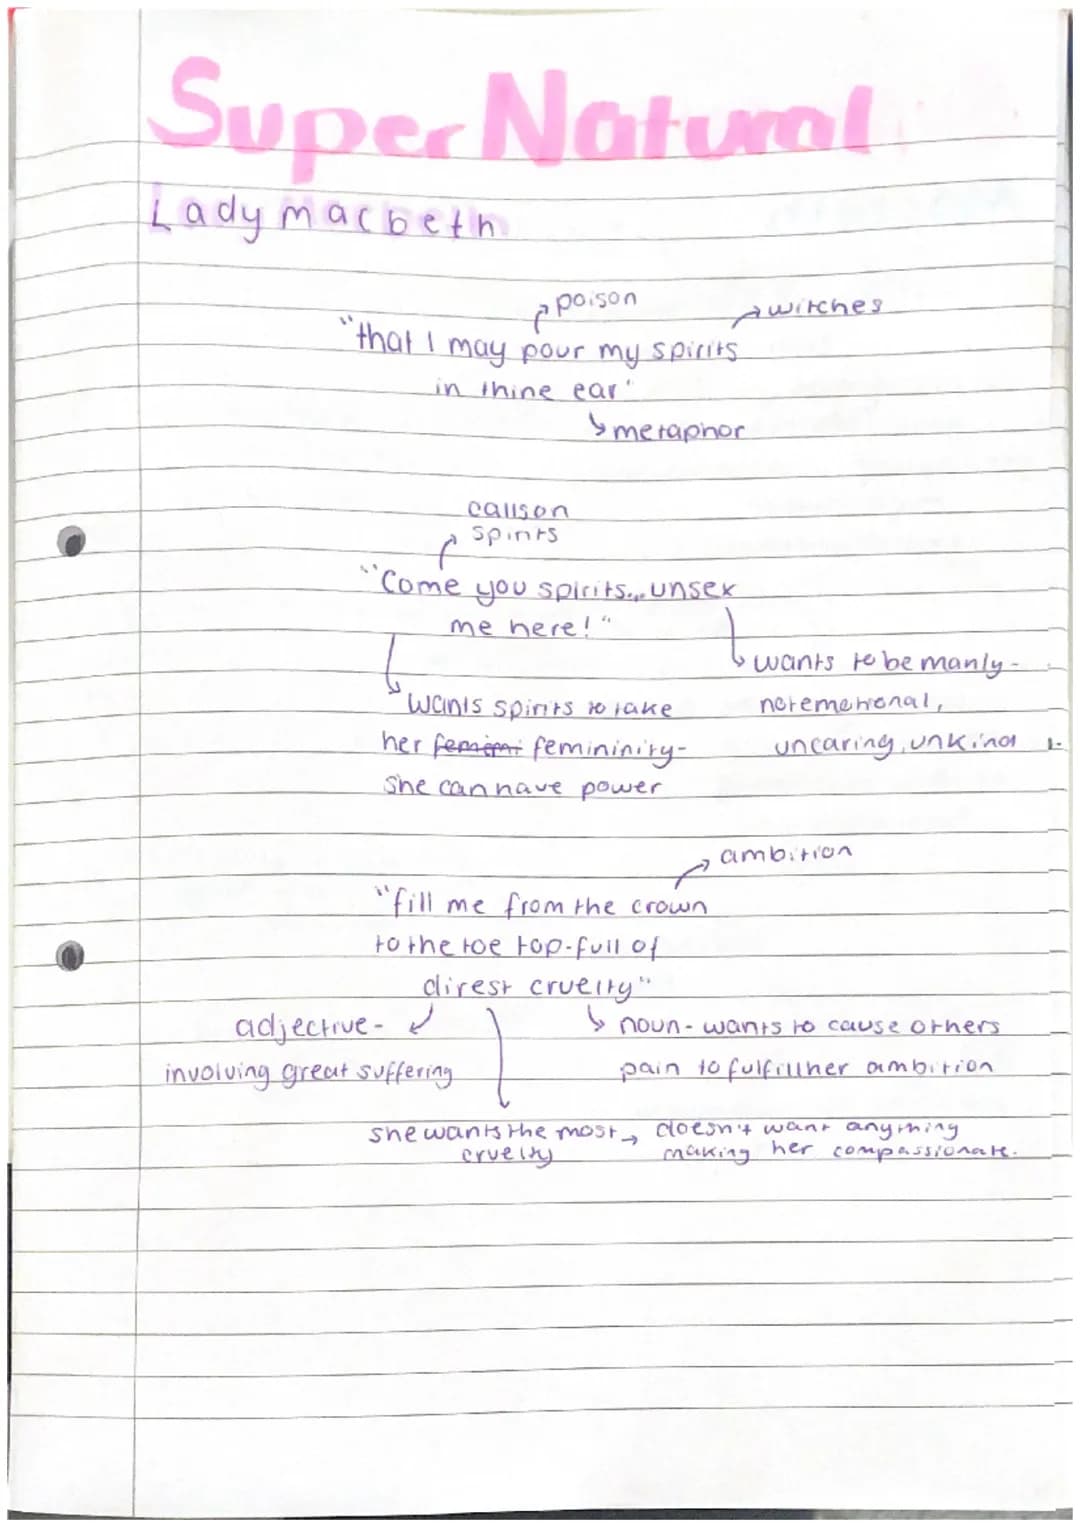 Super Natural
Lady macbeth
poison
witches
"that I may pour my spirits
in thine ear'
metaphor
calls on
spirits
"Come you spirits... unsex
me here!"
wants to be manly-
not emotional,
uncaring, unkind
wants spirits to take
her femini femininity-
she can have power
ambition
"fill me from the crown
to the toe top-full of
direst cruelty"
adjective-
involving great suffering
noun- wants to cause others
pain to fulfill her ambition
she wants the most
cruelty
doesn't want anything
making her compassionate.